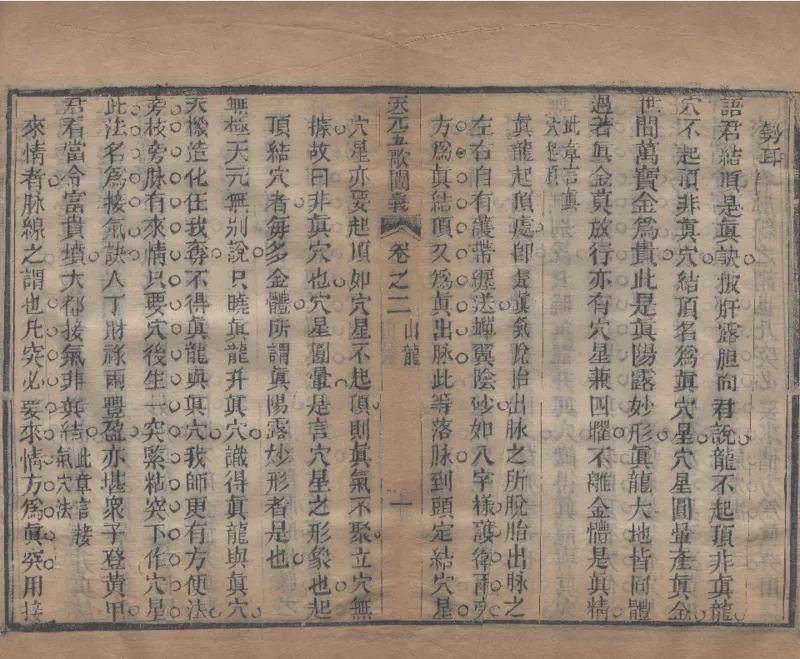 勢耳
語君結頂是真訣披肝露胆向君說龍不起頂非真龍
穴不起頂非真穴結頂名為真穴星穴星圓暈產真金
世間萬寶金為貴此是真陽露妙形真龍大地皆同體
過若真金莫放行亦有穴星兼四曜不離金體是真精
此章言真
穴穴頂
真龍起頂處卽是真氣脫胎出脉之所脫胎出脉之
左右自有護帶纏送蟬翼陰砂如八字樣護衛兩旁
方為真結頂又為真出脉此等落脉到頭定結穴星
天元五歌闡義 卷之二 山龍 一
穴星亦要起頂如穴星不起頂則真氣不聚立穴無
據故曰非真穴也穴星圓暈是言穴星之形象也起
頂結穴者每多金體所謂真陽露妙形者是也
無極天元無別說只曉真龍并真穴識得真龍與真穴
天機造化任我奪不得真龍與真穴我師更有方便法
旁枝旁脉有來情只要穴後生一突緊粘突下作穴星
此法名為接氣訣人丁財祿兩豐盈亦堪衆子登黃甲
君看當今富貴墳大都接氣非真結此章言接
氣穴法
來情者脉線之謂也凡突必要來情方為真突用接